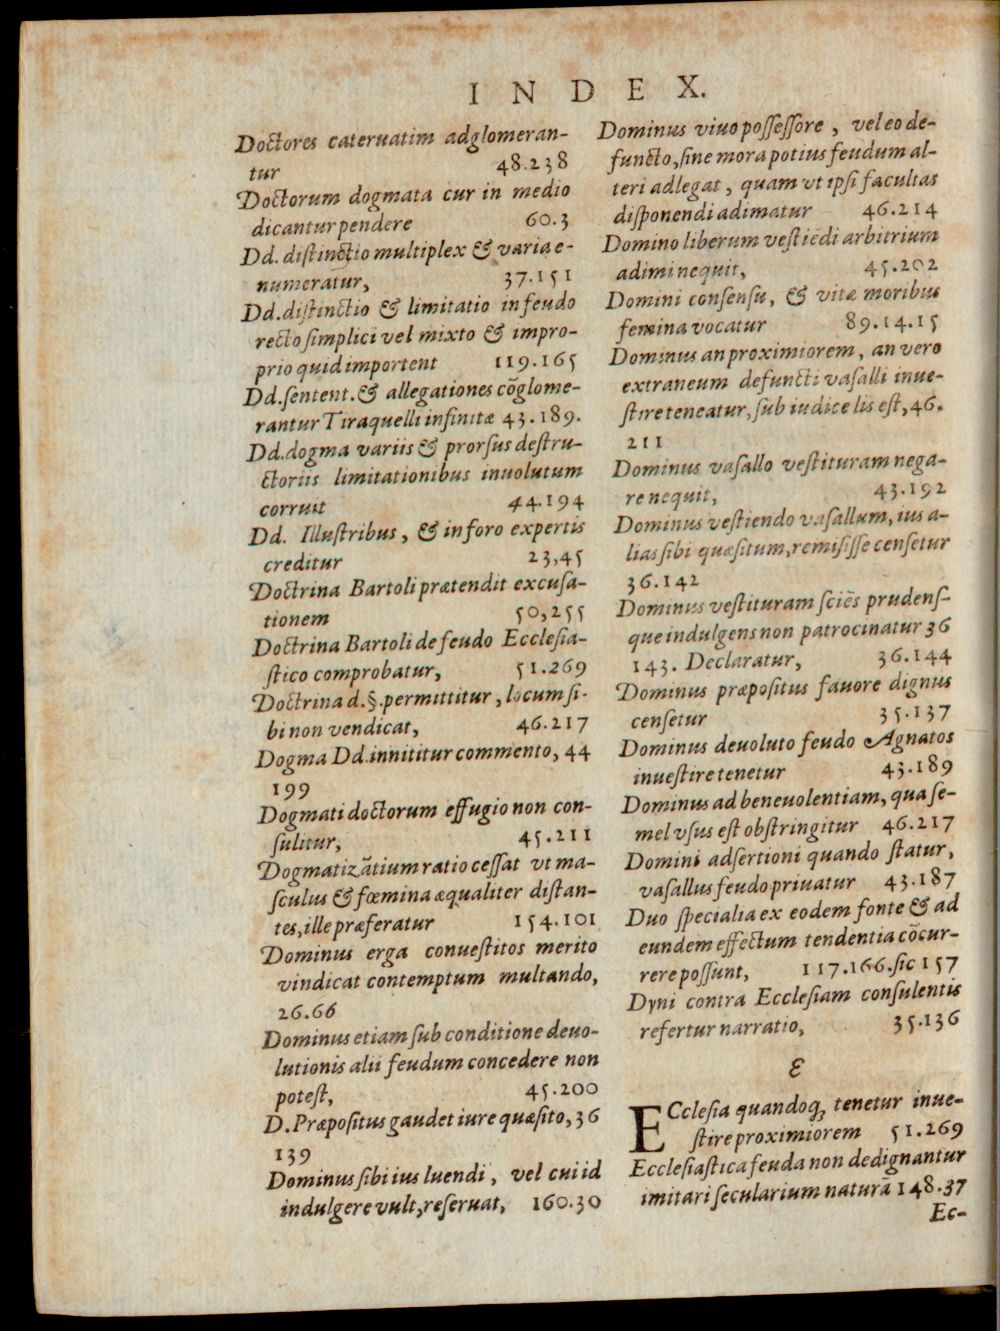 INDEX.
Doctores cateruatim adglomeran-
tur 48.238
Doctorum dogmata cur in medio
dicantur pendere 60.3
Dd. distinctio multiplex & varia e-
numeratur, 37.151
Dd. distinctio & limitatio in feudo
recto simplici vel mixto & impro-
prio quid importent 119.165
Dd. sentent. & allegationes cõglome-
rantur Tiraquelli infinitæ 43.189.
Dd. dogma variis & prorsus destru-
ctoriis limitationibus inuolutum
corruit 44.194
Dd. Illustribus, & in foro expertis
creditur 23,45
Doctrina Bartoli prætendit excusa-
tionem 50,255
Doctrina Bartoli de feudo Ecclesia-
stico comprobatur, 51.269
Doctrina d.§. permittitur, locum si-
bi non vendicat, 46.217
Dogma Dd. innititur commento, 44
199
Dogmati doctorum effugio non con-
sulitur, 45.211
Dogmatizãtium ratio cessat vt ma-
sculus & fœmina æqualiter distan-
tes, ille præferatur 154.101
Dominus erga conuestitos merito
vindicat contemptum multando,
26.66
Dominus etiam sub conditione deuo-
lutionis alii feudum concedere non
potest, 45.200
D. Præpositus gaudet iure quæsito, 36
139
Dominus sibi ius luendi, vel cui id
indulgere vult, reseruat, 160.30
Dominus viuo possessore, vel eo de-
functo, sine mora potius feudum al-
teri adlegat, quam vt ipsi facultas
disponendi adimatur 46.214
Domino liberum vestiēdi arbitrium
adimi nequit, 45.202
Domini consensu, & vitæ moribus
femina vocatur 89.14.15
Dominus an proximiorem, an vero
extraneum defuncti vasalli inue-
stire teneatur, sub iudice lis est, 46.
211
Dominus vasallo vestituram nega-
re nequit, 43.192
Dominus vestiendo vasallum, ius a-
lias sibi quæsitum, remisisse censetur
36.142
Dominus vestituram sciēs prudens-
que indulgens non patrocinatur 36
143. Declaratur, 36.144
Dominus præpositus fauore dignus
censetur 35.137
Dominus deuoluto feudo Agnatos
inuestire tenetur 43.189
Dominus ad beneuolentiam, qua se-
mel vsus est obstringitur 46.217
Domini adsertioni quando statur,
vasallus feudo priuatur 43.187
Duo specialia ex eodem fonte & ad
eundem effectum tendentia cõcur-
rere possunt, 117.166. sic 157
Dyni contra Ecclesiam consulentis
refertur narratio, 35.136
E
ECclesia quandoq; tenetur inue-
stire proximiorem 51.269
Ecclesiastica feuda non dedignantur
imitari secularium naturã 148.37
Ec-